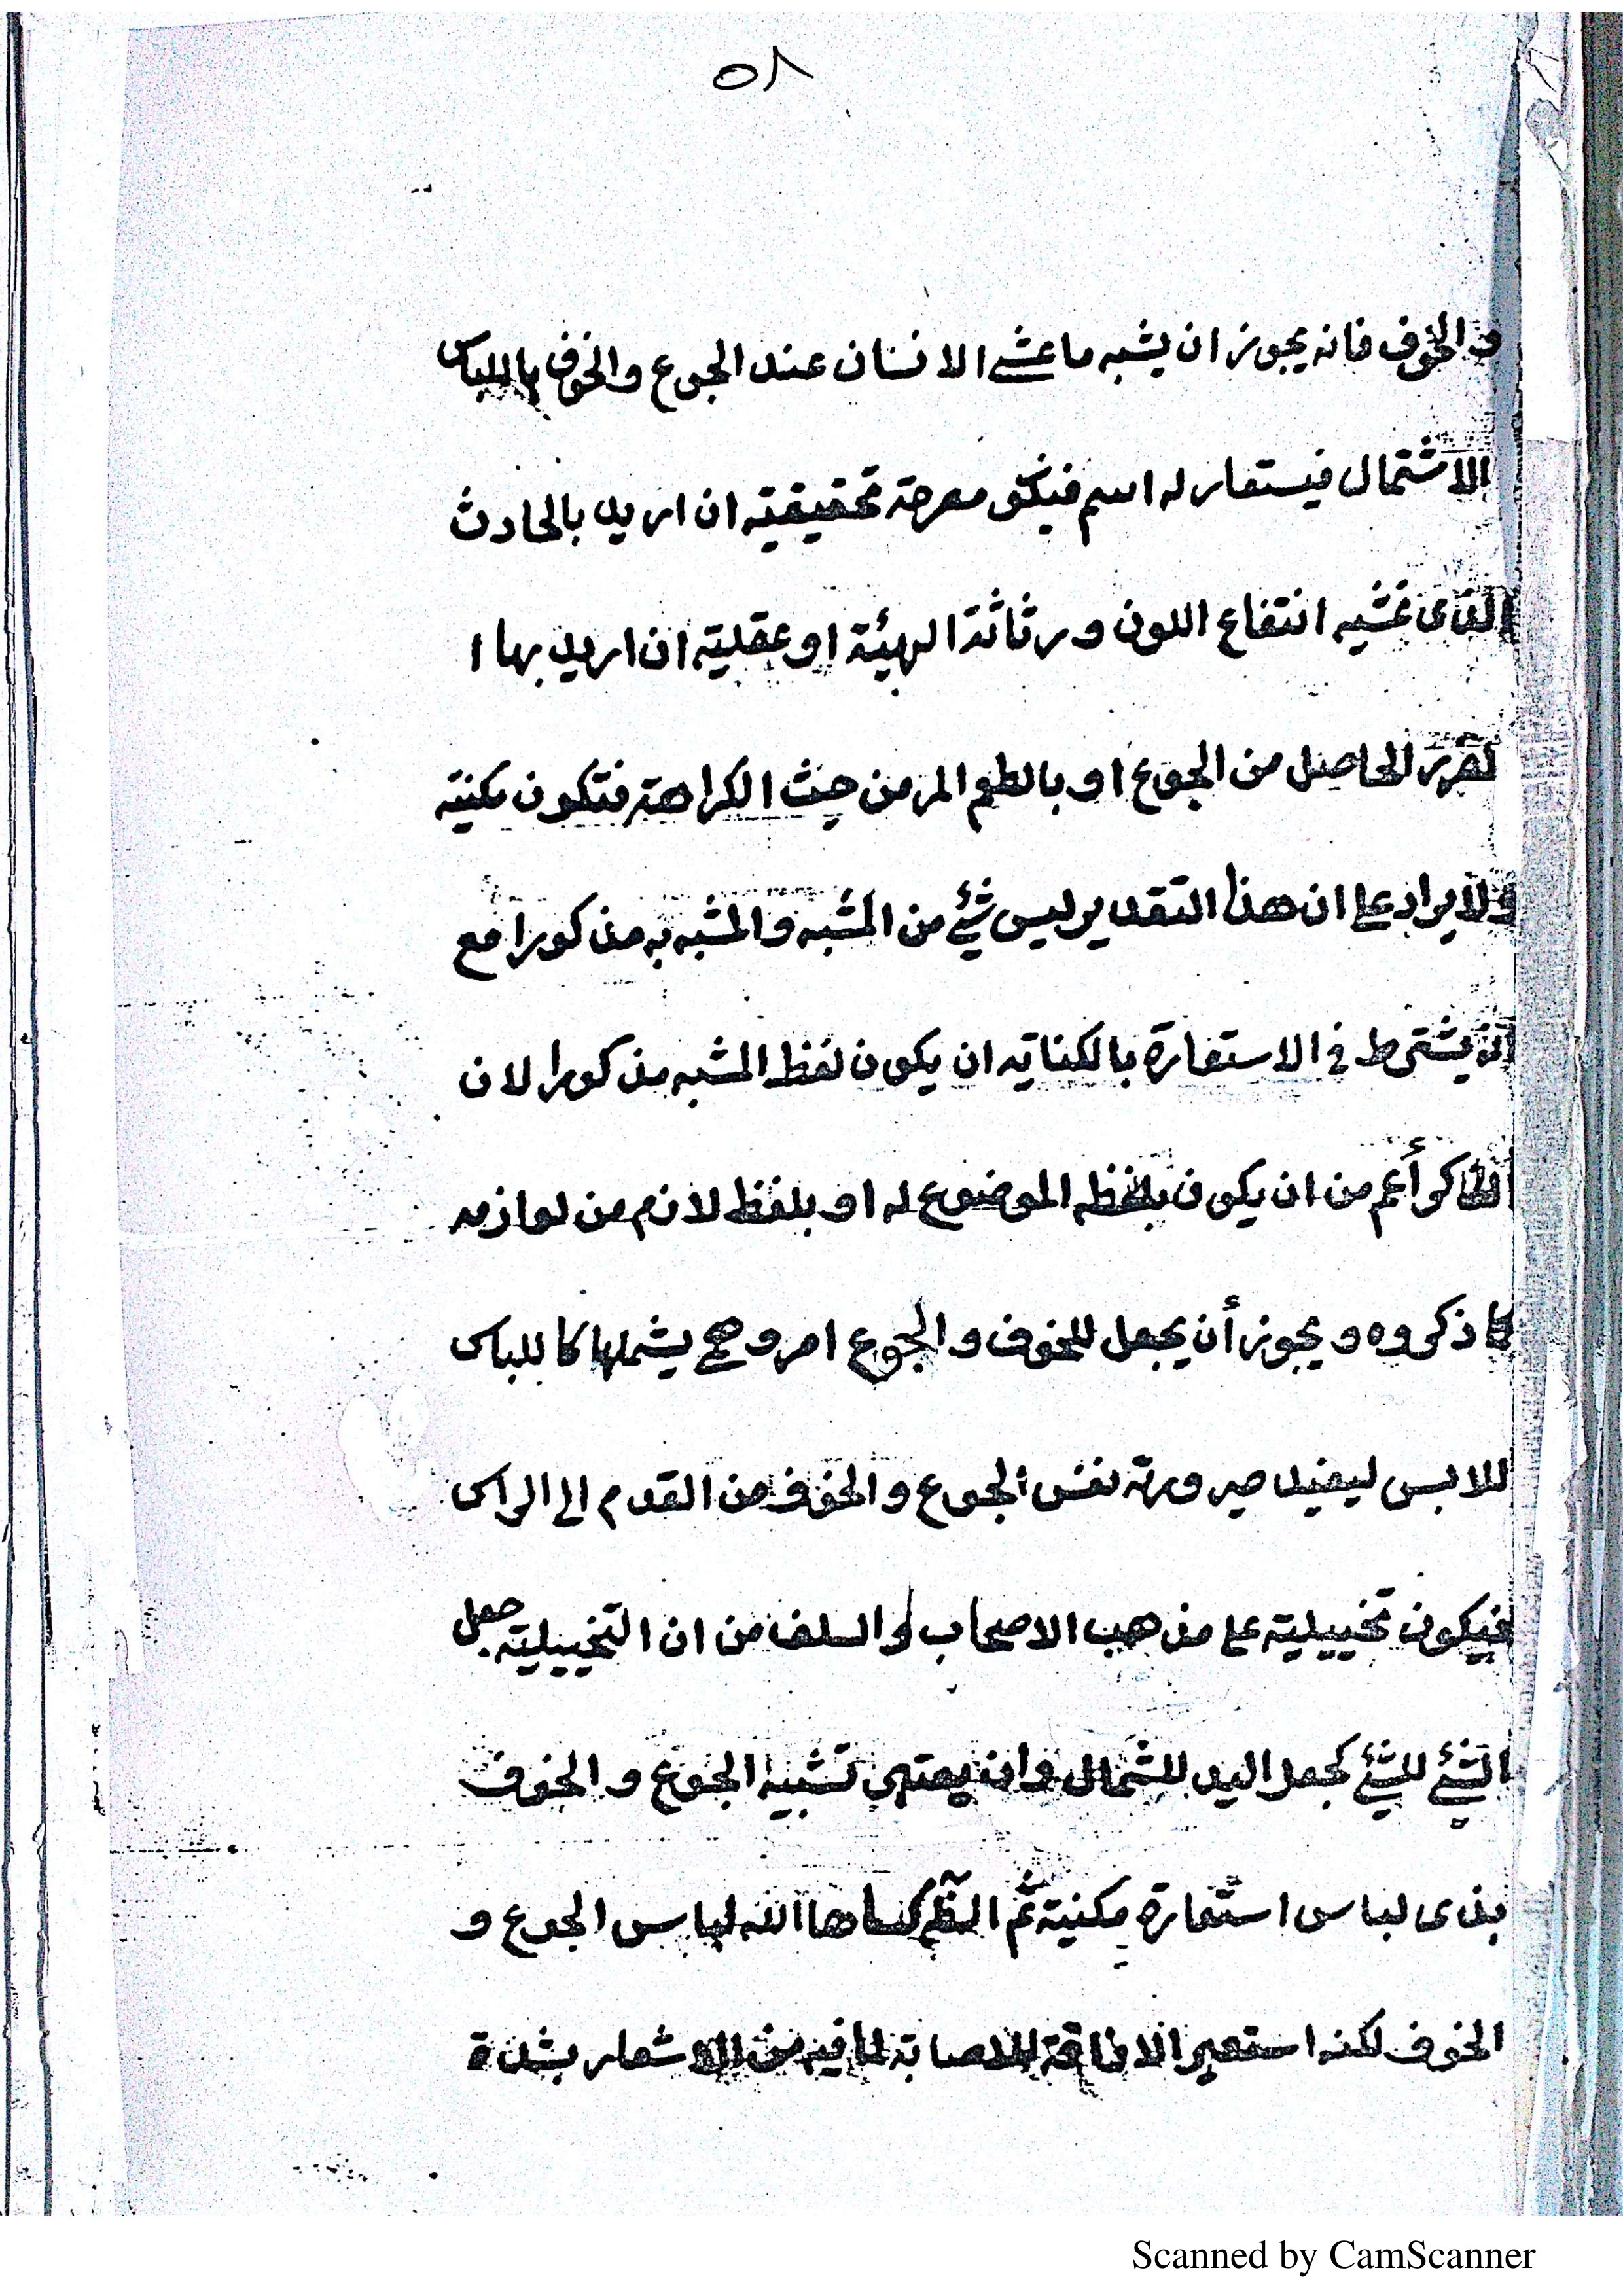 ٥٨
والخوف فانه يجوز ان يشبه ما غشى الانسان عند الجوع والخوف باللباس
الاشتمال فيستعار له اسم فيكون مصرحة تحقيقية ان اريد بالحادث
الذى غشيه انتفاع اللون ورثاثة الهيئة او عقلية ان اريد بها ا
لضرر الحاصل من الجوع او بالطعم المر من حيث الكراهة فتكون مكنية
ولا يراد على ان هذا التقدير ليس شئ من المشبه والمشبه به مذكورا مع
انه يشترط فى الاستعارة بالكناية ان يكون لفظ المشبه مذكورا لان
الذاكر أعم من ان يكون بلفظه الموضوع له او بلفظ لازم من لوازمه
كما ذكروه ويجوز أن يجعل للخوف والجوع امر وهمى يشملها كاللباس
للابس ليفيد صيرورته نفس الجوع والخوف من القدم الى الراس
فيكون تخييلية على مذهب الاصحاب والسلف من ان التخييلية جعل
الشئ للشئ كجعل اليد للشمال وان يعتبر تشبيه الجوع والخوف
بذى لباس استعارة مكنية ثم النظم كساها الله لباس الجوع و
الخوف لكنه استعير الاذاقة للاصابة لما فيه من الاشعار بشدة
Scanned by CamScanner